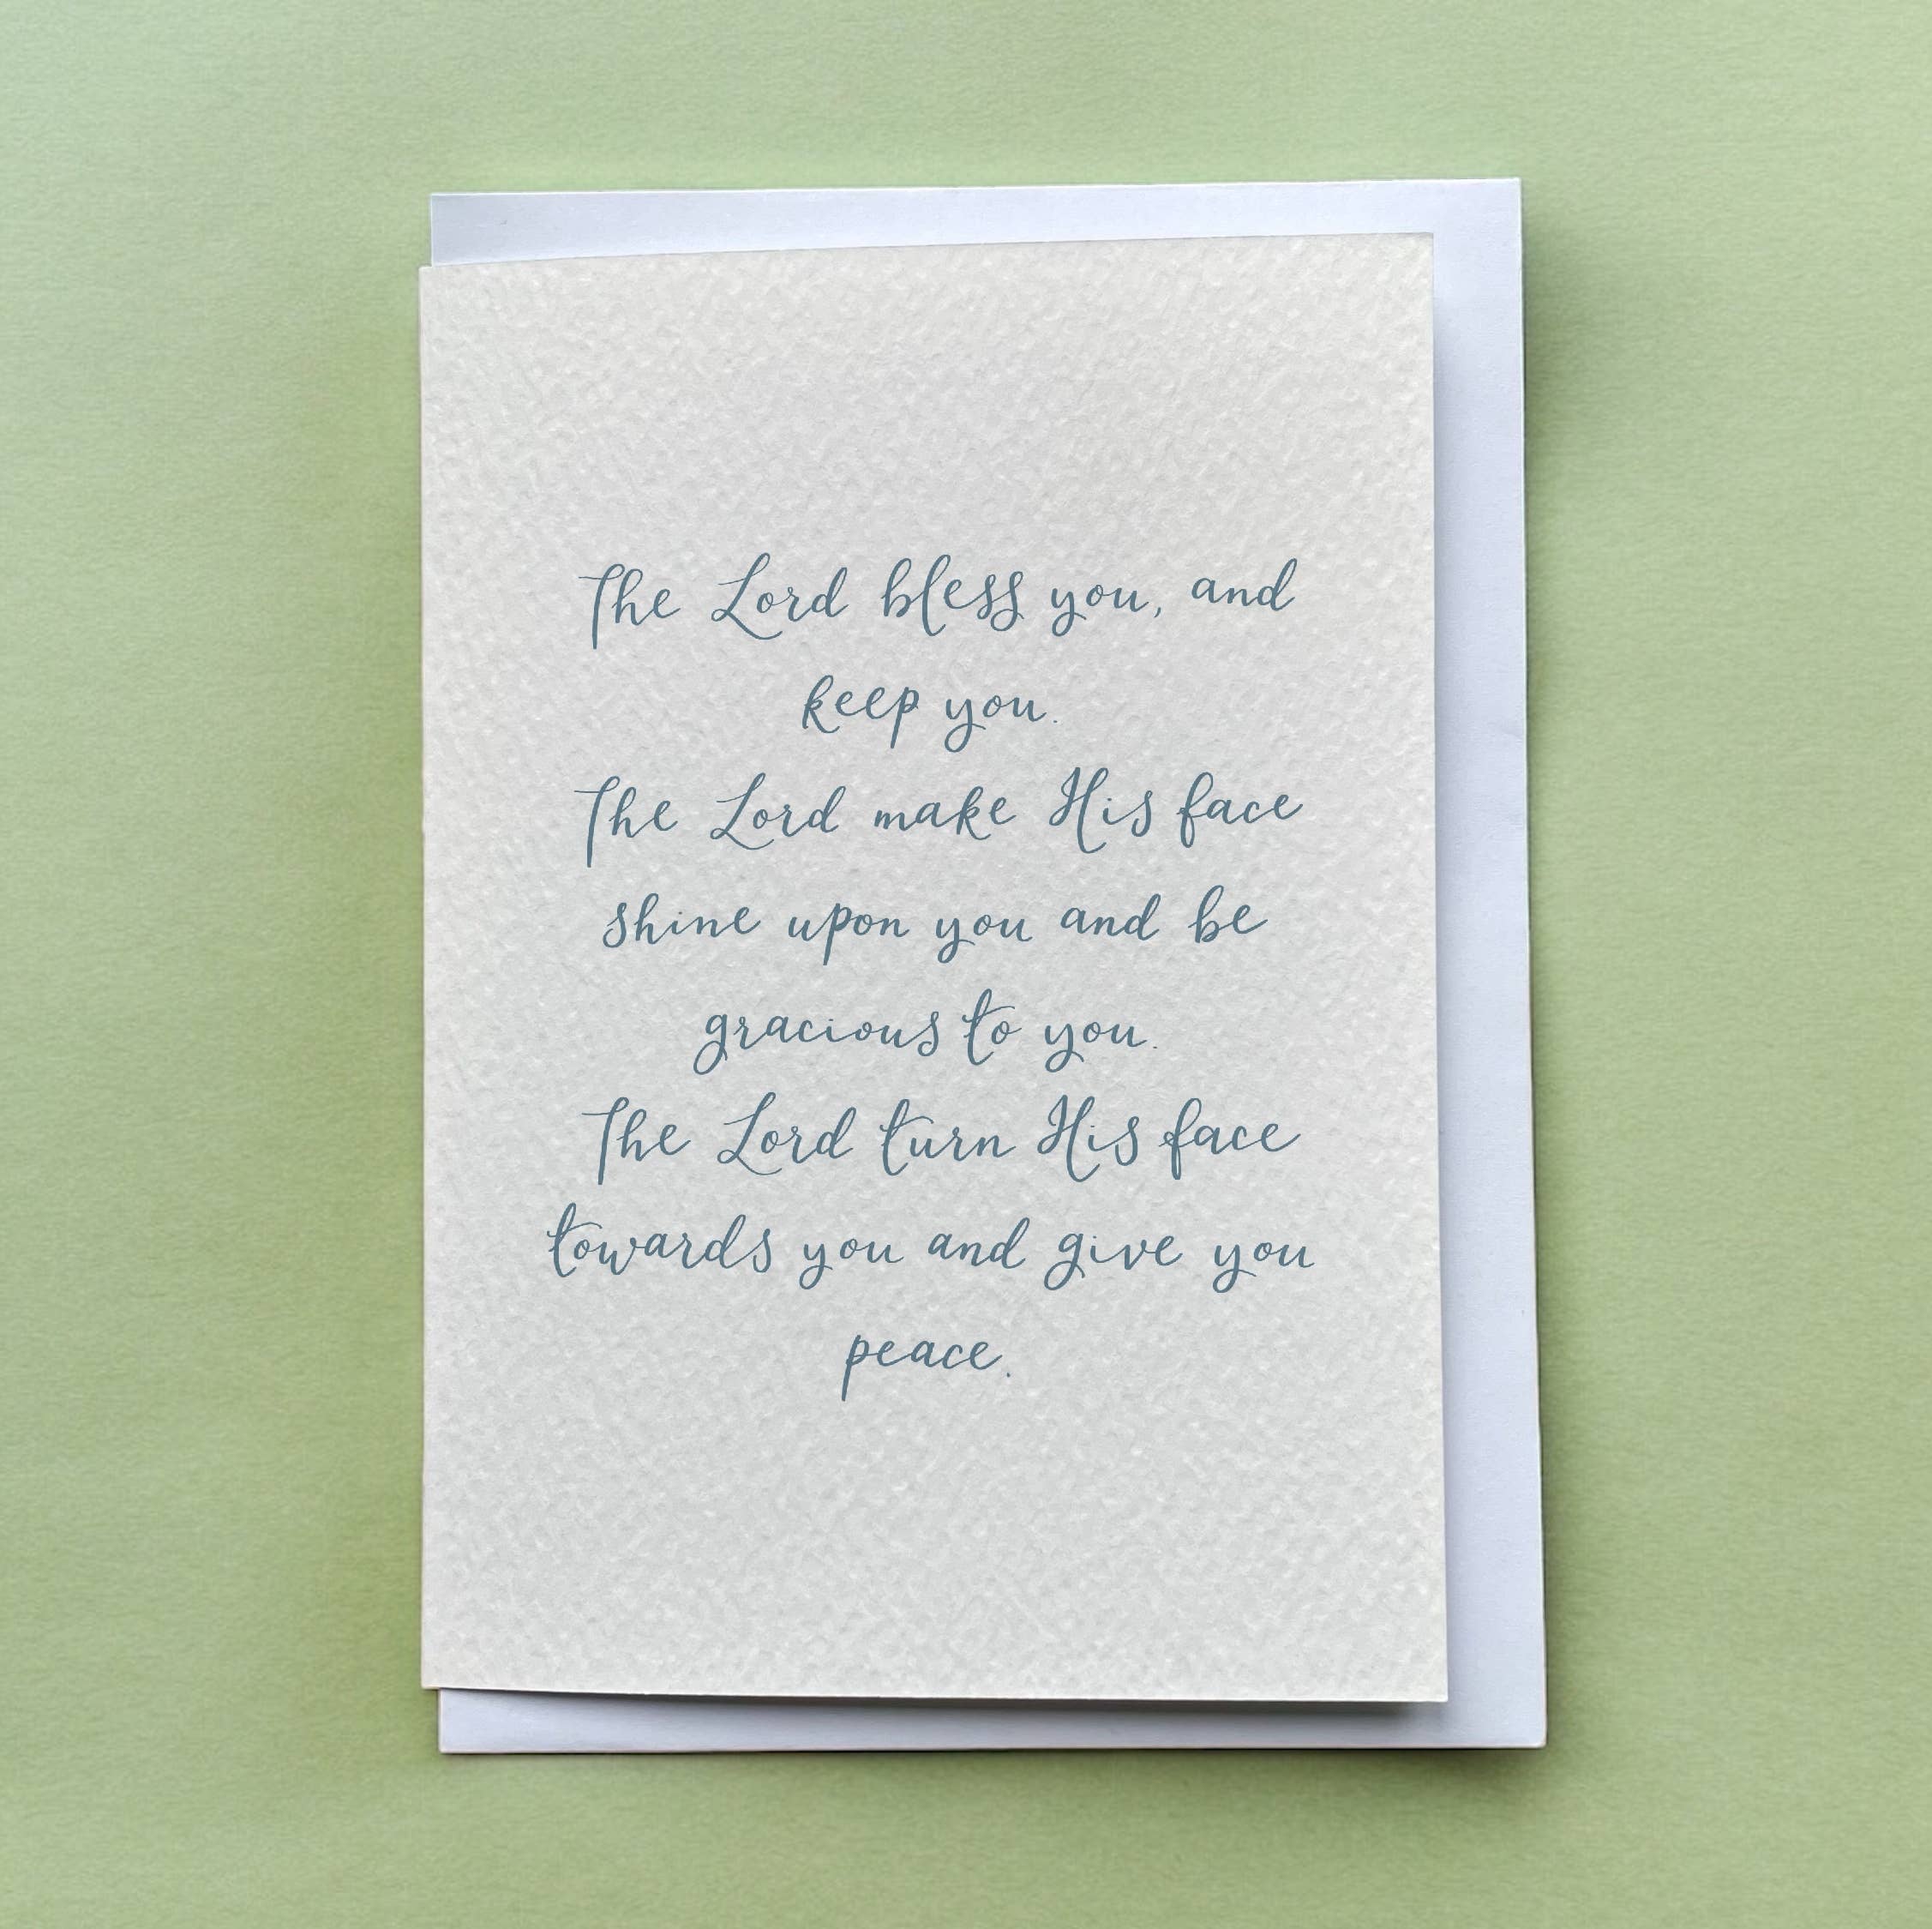 The Lord bless you, and
keep you.
The Lord make His face
shine upon you and be
gracious to you.
The Lord turn His face
towards you and give you
peace.